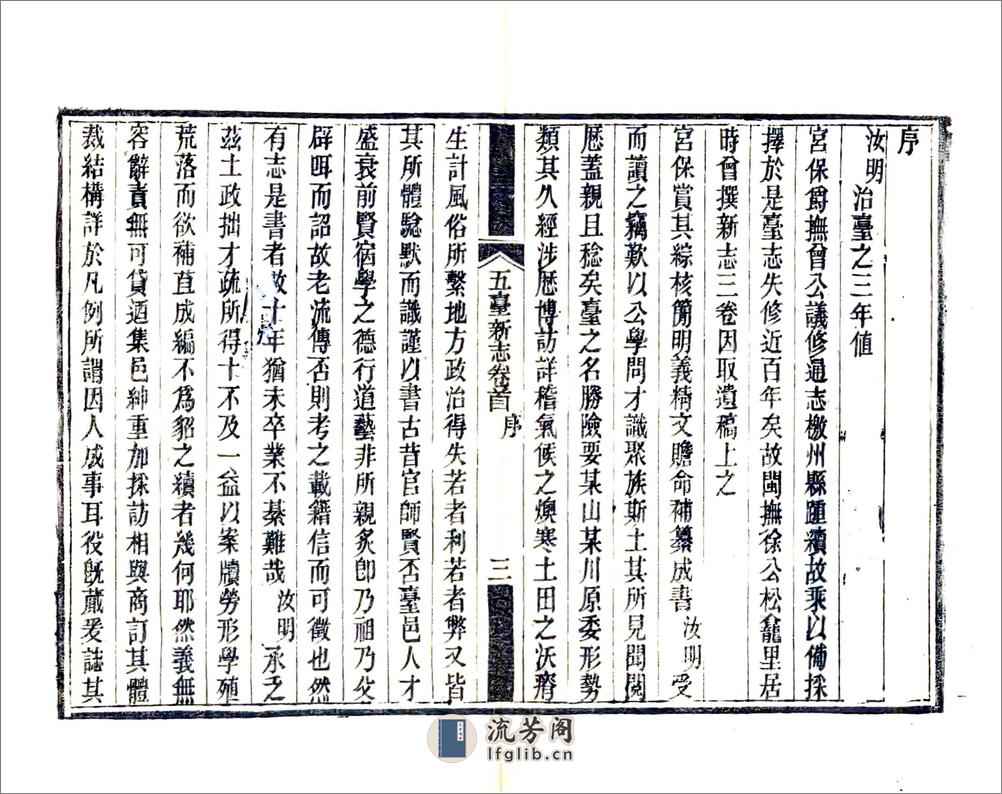 序
汝明治臺之三年值
宮保爵撫曾公議修通志檄州縣踵續故乘以備採
擇於是臺志失修近百年矣故閩撫徐公松龕里居
時曾撰新志三卷因取遺稿上之
宮保賞其綜核簡明義精文贍命補纂成書汝明受
而讀之竊歎以公學問才識聚族斯土其所見聞閱
歷蓋親且稔矣臺之名勝險要某山某川原委形勢
類其久經涉歷博訪詳稽氣候之燠寒土田之沃瘠
五臺新志卷首 序 三
生計風俗所繫地方政治得失若者利若者弊又皆
其所體驗默而識謹以書古昔官師賢否臺邑人才
盛衰前賢宿學之德行道藝非所親炙卽乃祖乃父
辟咡而詔故老流傳否則考之載籍信而可徵也然
有志是書者數十年猶未卒業不綦難哉汝明承乏
茲土政拙才疏所得十不及一益以案牘勞形學殖
荒落而欲補苴成編不爲貂之續者幾何耶然義無
容辭責無可貸迺集邑紳重加採訪相與商訂其體
裁結構詳於凡例所謂因人成事耳役旣蕆爰誌其
流芳阁
lfglib.cn